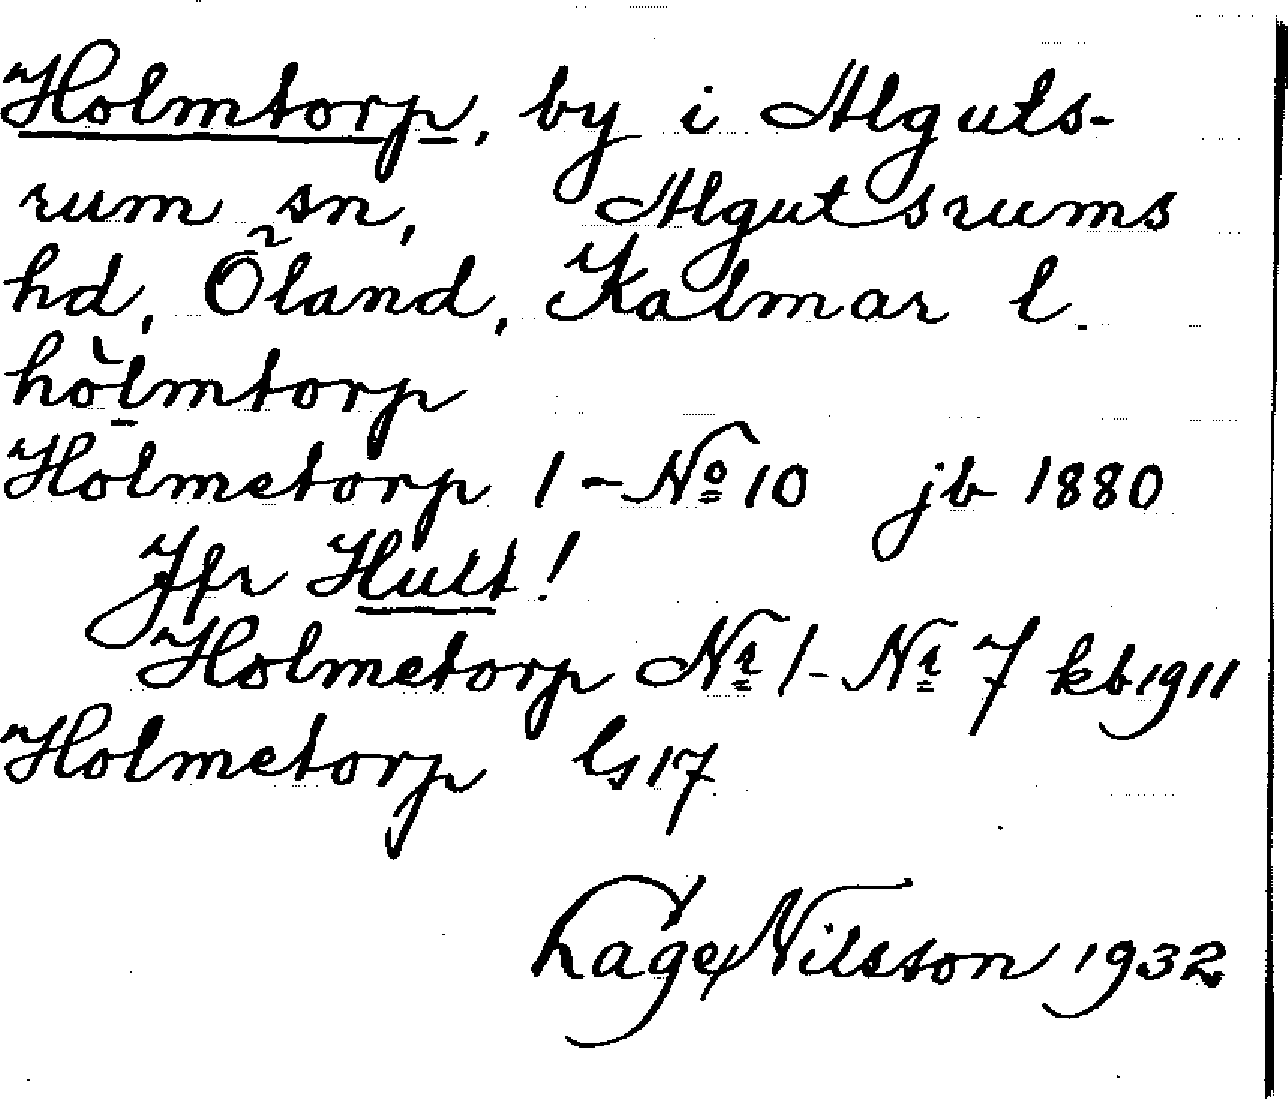 Holmtorp, by i Alguts-
rum sn, Algutsrums
hd, Öland, Kalmar l.
hòl̠mtorp
Holmetorp 1 - No 10 jb 1880
Jfr Hult!
Holmetorp Na 1 - Na 7 kb 1911
Holmetorp ls 17
Nilsson 1932